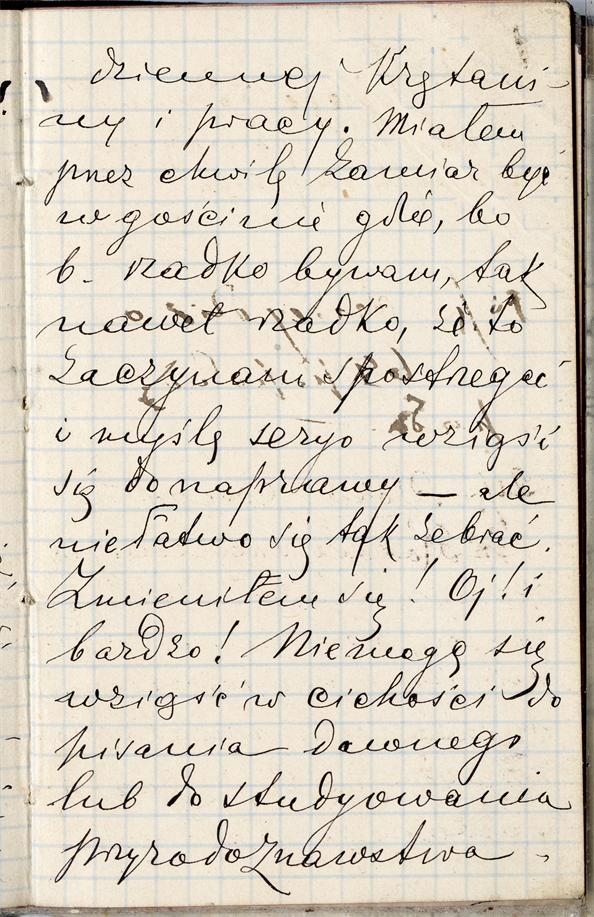 dziennej krzątani-
ny i pracy. Miałem
przez chwilę zamiar być
w gościnie gdzie, bo
b. rzadko bywam, tak
nawet rzadko, że to
zaczynam spostrzegać
i myślę seryo wziąść
się do naprawy — ale
niełatwo się tak zebrać.
Zmieniłem się! Oj! i
bardzo! Niemogę się
wziąść w cichości do
pisania dawnego
lub do studyowania
przyrodoznawstwa.